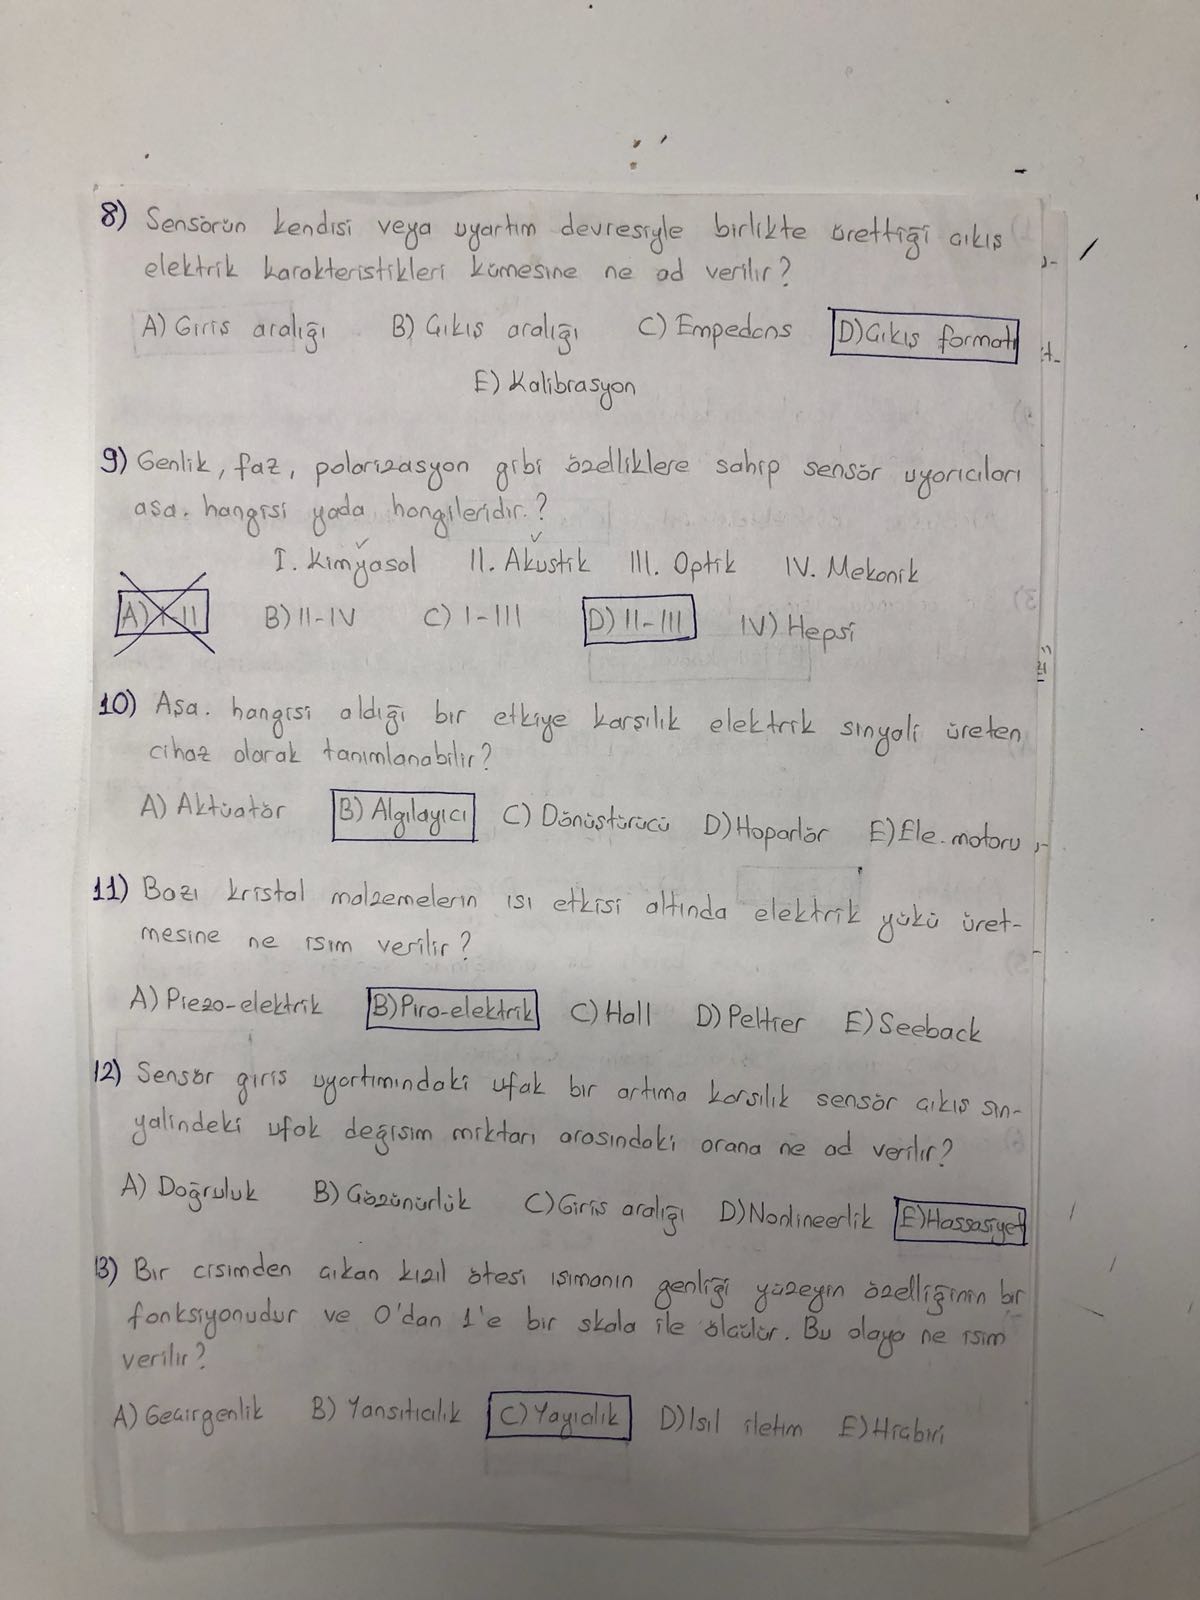 8) Sensörün kendisi veya uyartım devresiyle birlikte ürettiği çıkış
elektrik karakteristikleri kümesine ne ad verilir?
A) Giriş aralığı B) Çıkış aralığı C) Empedans D) Çıkış formatı
E) Kalibrasyon
9) Genlik, faz, polarizasyon gibi özelliklere sahip sensör uyarıcıları
aşa. hangisi yada hangileridir.?
I. Kimyasal II. Akustik III. Optik IV. Mekanik
A) I-II B) II-IV C) I-III D) II-III IV) Hepsi
10) Aşa. hangisi aldığı bir etkiye karşılık elektrik sinyali üreten
cihaz olarak tanımlanabilir?
A) Aktüatör B) Algılayıcı C) Dönüştürücü D) Hoparlör E) Ele. motoru
11) Bazı kristal malzemelerin ısı etkisi altında elektrik yükü üret-
mesine ne isim verilir?
A) Piezo-elektrik B) Piro-elektrik C) Hall D) Peltier E) Seeback
12) Sensör giriş uyartımındaki ufak bir artıma karşılık sensör çıkış sin-
yalindeki ufak değişim miktarı arasındaki orana ne ad verilir?
A) Doğruluk B) Çözünürlük C) Giriş aralığı D) Nonlineerlik E) Hassasiyet
13) Bir cisimden çıkan kızıl ötesi ışımanın genliği yüzeyin özelliğinin bir
fonksiyonudur ve 0'dan 1'e bir skala ile ölçülür. Bu olaya ne isim
verilir?
A) Geçirgenlik B) Yansıtıcılık C) Yayıcılık D) Isıl iletim E) Hiçbiri